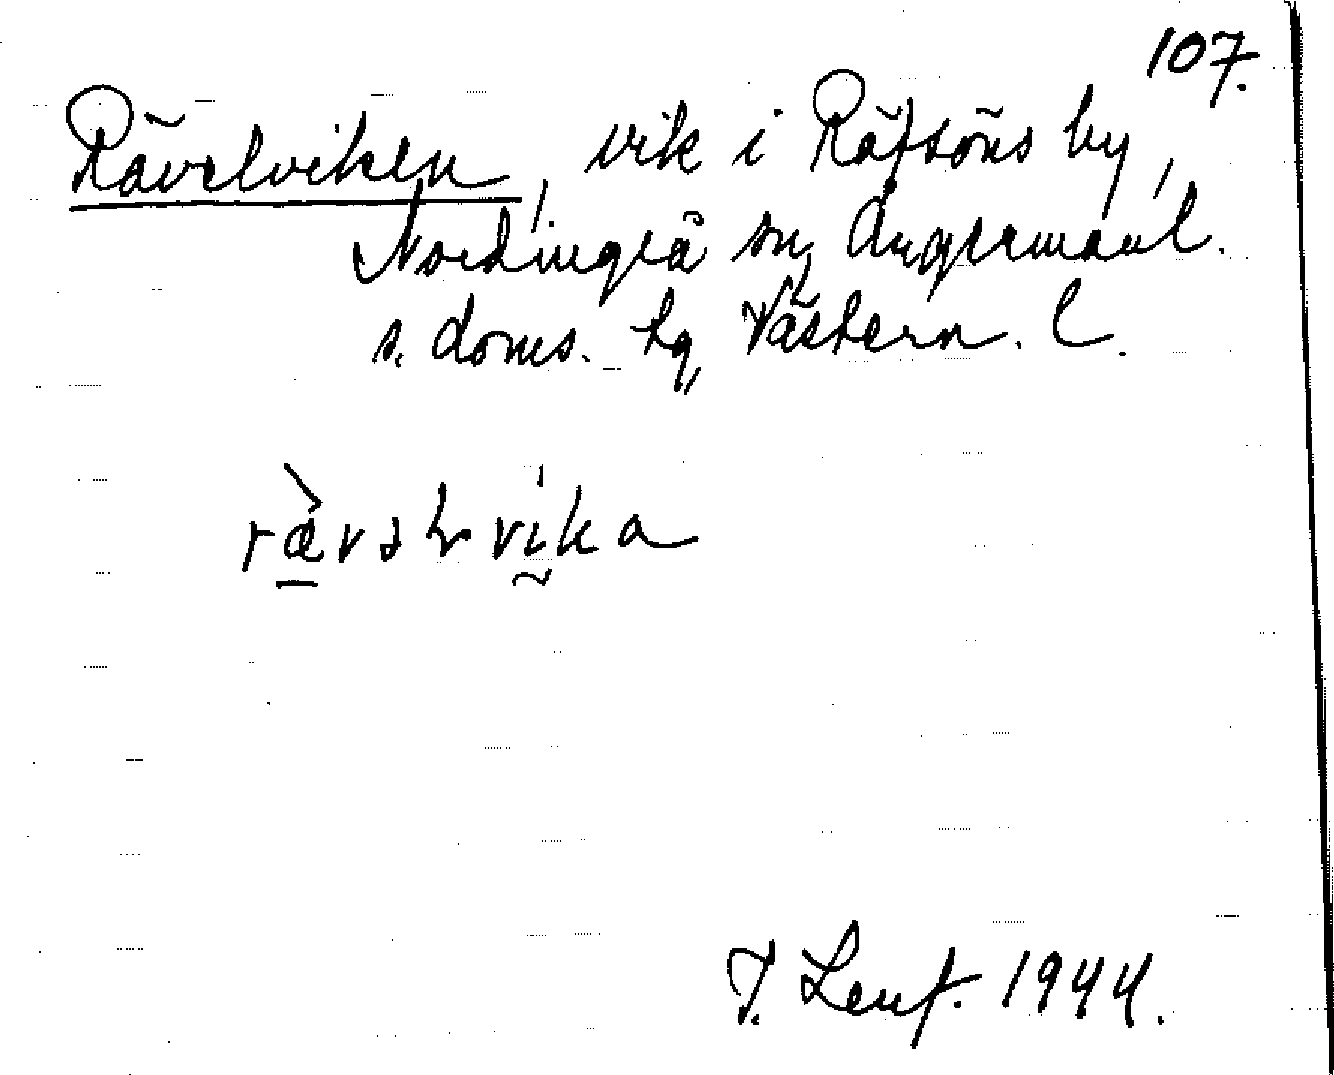 107.
Rävelviken, vik i Räfsöns by,
Nordingrå sn, Ångermanl.
s. doms. tg, Västern. l.
T. Lenf. 1944.